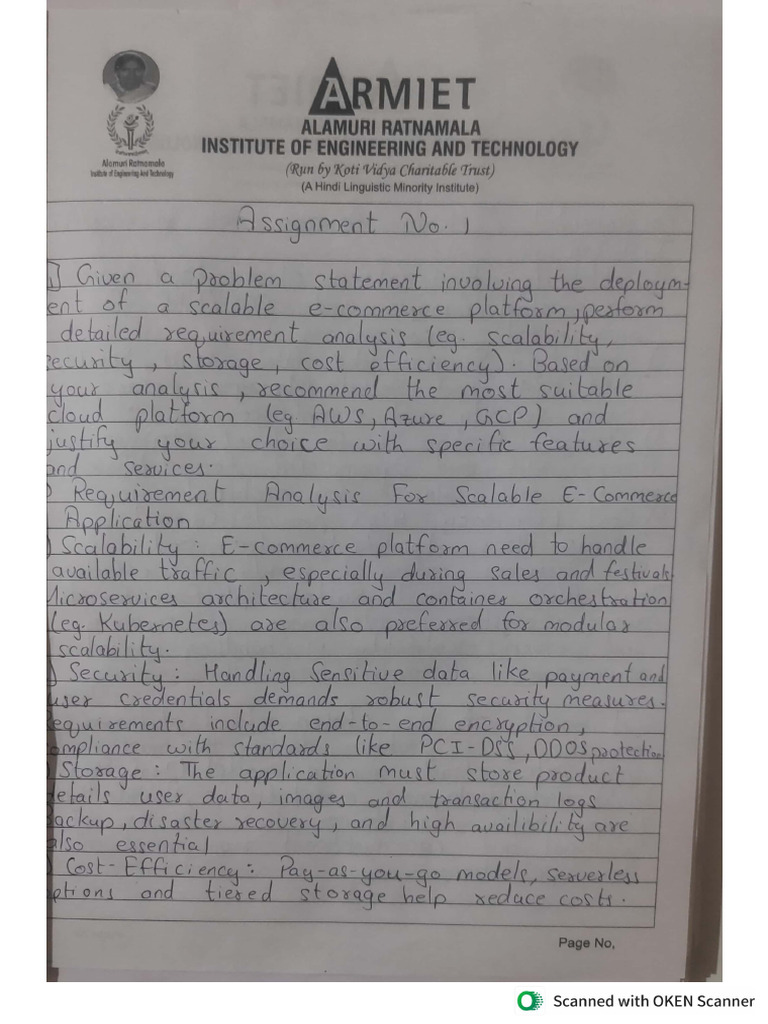 ARMIET
ALAMURI RATNAMALA
INSTITUTE OF ENGINEERING AND TECHNOLOGY
(Run by Koti Vidya Charitable Trust)
(A Hindi Linguistic Minority Institute)
Alamuri Ratnamala
Institute of Engineering And Technology
Assignment No. 1
1] Given a problem statement involving the deploym-
ent of a scalable e-commerce platform, perform
detailed requirement analysis (eg. scalability,
ecurity, storage, cost efficiency). Based on
your analysis, recommend the most suitable
cloud platform (eg. AWS, Azure, GCP) and
justify your choice with specific features
and services.
) Requirement Analysis For Scalable E-Commerce
Application
) Scalability: E-commerce platform need to handle
available traffic, especially during sales and festivals
Microservices architecture and container orchestration
(eg. Kubernetes) are also preferred for modular
scalability.
) Security: Handling Sensitive data like payment and
user credentials demands robust security measures.
equirements include end-to-end encryption,
ompliance with standards like PCI-DSS, DDOS protection
) Storage: The application must store product
etails user data, images and transaction logs
backup, disaster recovery, and high availibility are
also essential
) Cost-Efficiency: Pay-as-you-go models, serverless
ptions and tiered storage help reduce costs.
Page No,
Scanned with OKEN Scanner